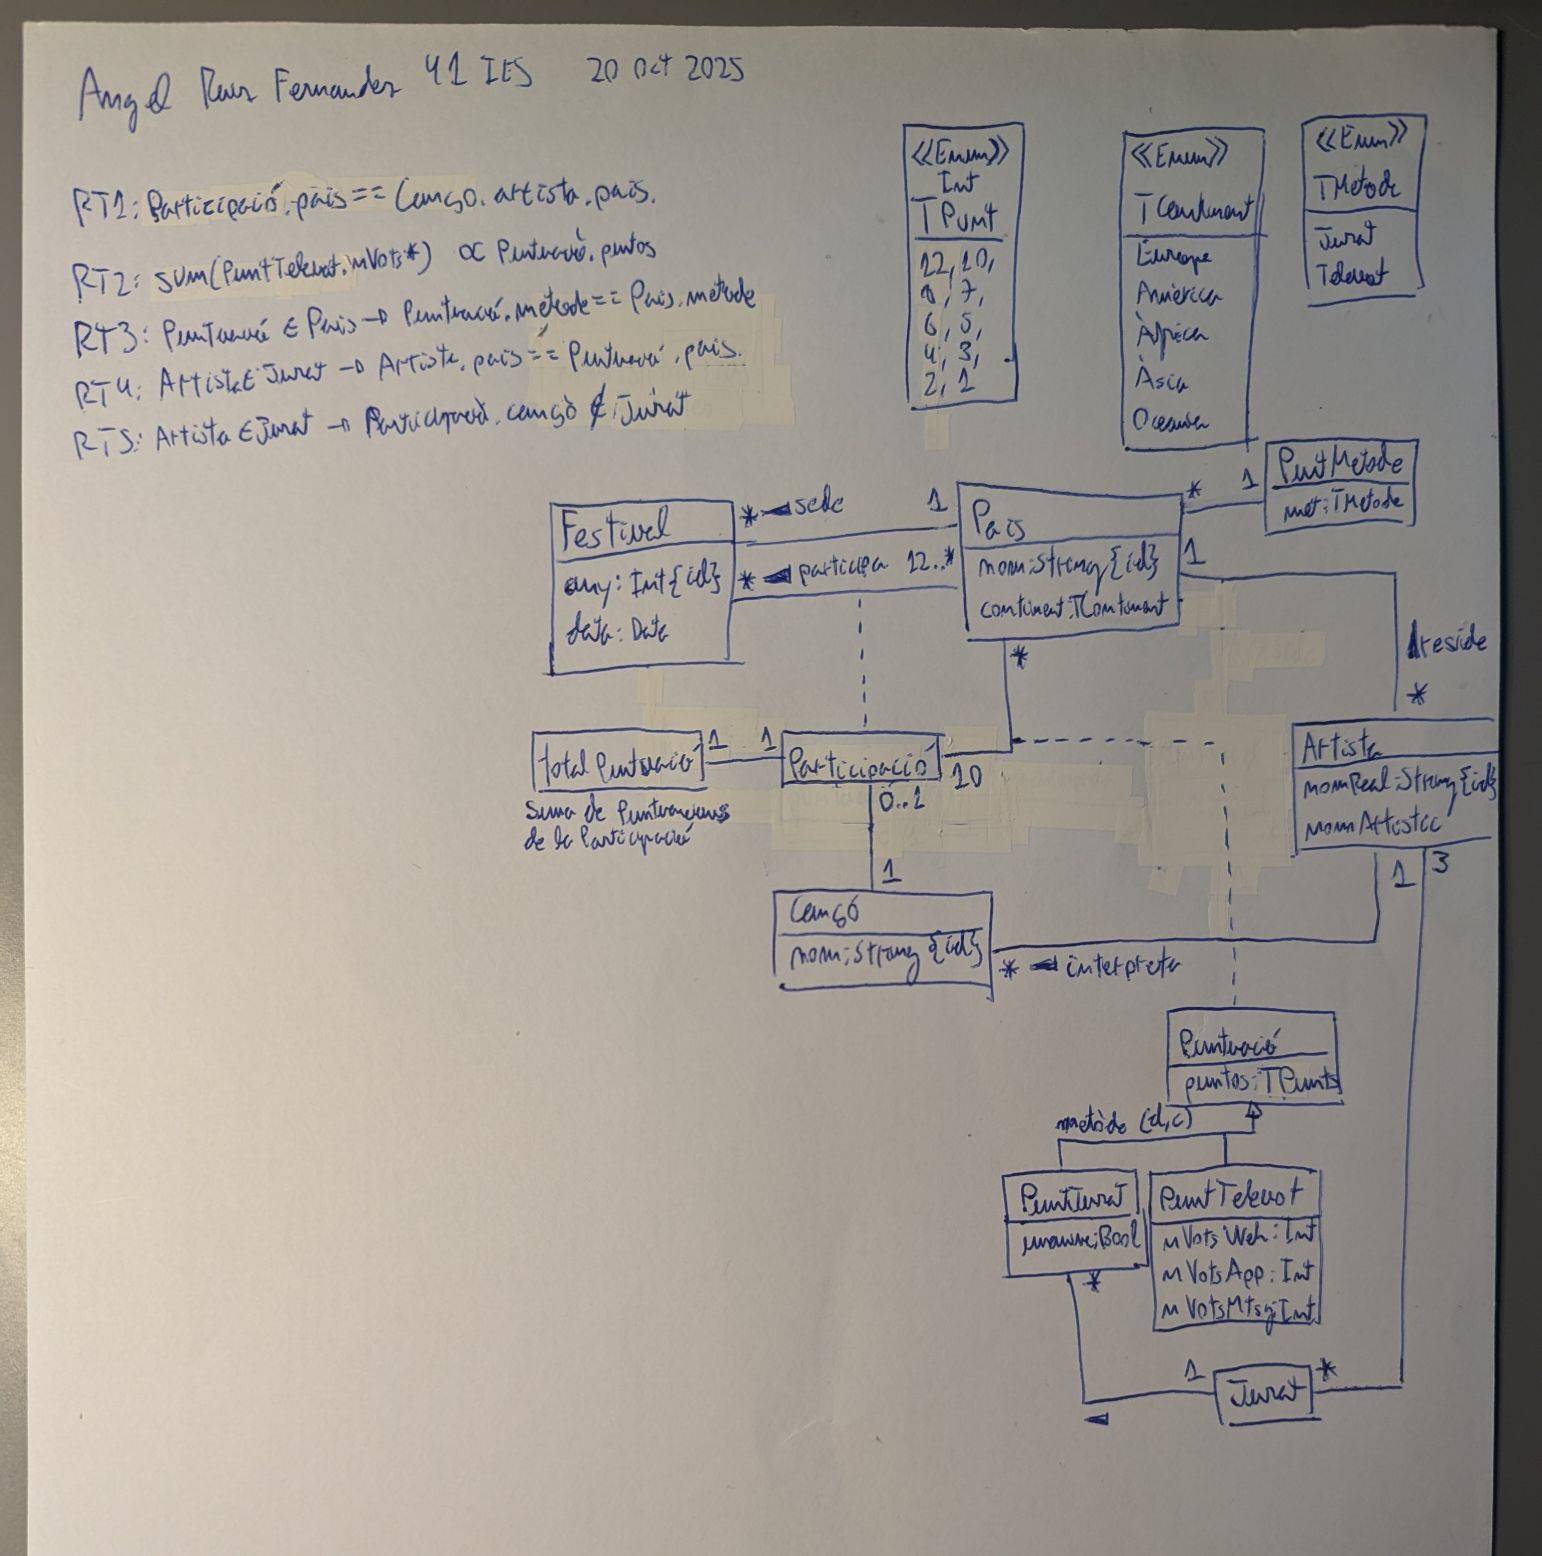 Angel Ruiz Fernandez 41 IES 20 Oct 2025
RT1: Participació.pais == Cançó.artista.pais.
RT2: sum(PuntTelevot.nVots*) ∝ Puntuació.puntos
RT3: Puntuació ∈ Pais → Puntuació.mètode == Pais.metode
RT4: Artista ∈ Jurat → Artista.pais == Puntuació.pais.
RT5: Artista ∈ Jurat → Participació.cançó ∉ Jurat
<<Enum>>
Int
TPunt
12, 10,
8, 7,
6, 5,
4, 3,
2, 1
<<Enum>>
TContinent
Europa
Amèrica
Àfrica
Àsia
Oceania
<<Enum>>
TMetode
Jurat
Televot
PuntMetode
met: TMetode
* 1
Festival
any: Int {id}
data: Data
* sede 1
* participa 12..*
Pais
nom: String {id}
continent: TContinent
1
reside
*
*
total Puntuació
1 1
Suma de Puntuacions
de la Participació
Participació
10
0..1
1
Artista
nomReal: String {id}
nomArtistic
1 3
Cançó
nom: String {id}
* interpreta
Puntuació
puntos: TPunts
metòde (d,c)
PuntJurat
unanime: Bool
*
PuntTelevot
nVotsWeb: Int
nVotsApp: Int
nVotsMtsg: Int
1 Jurat *